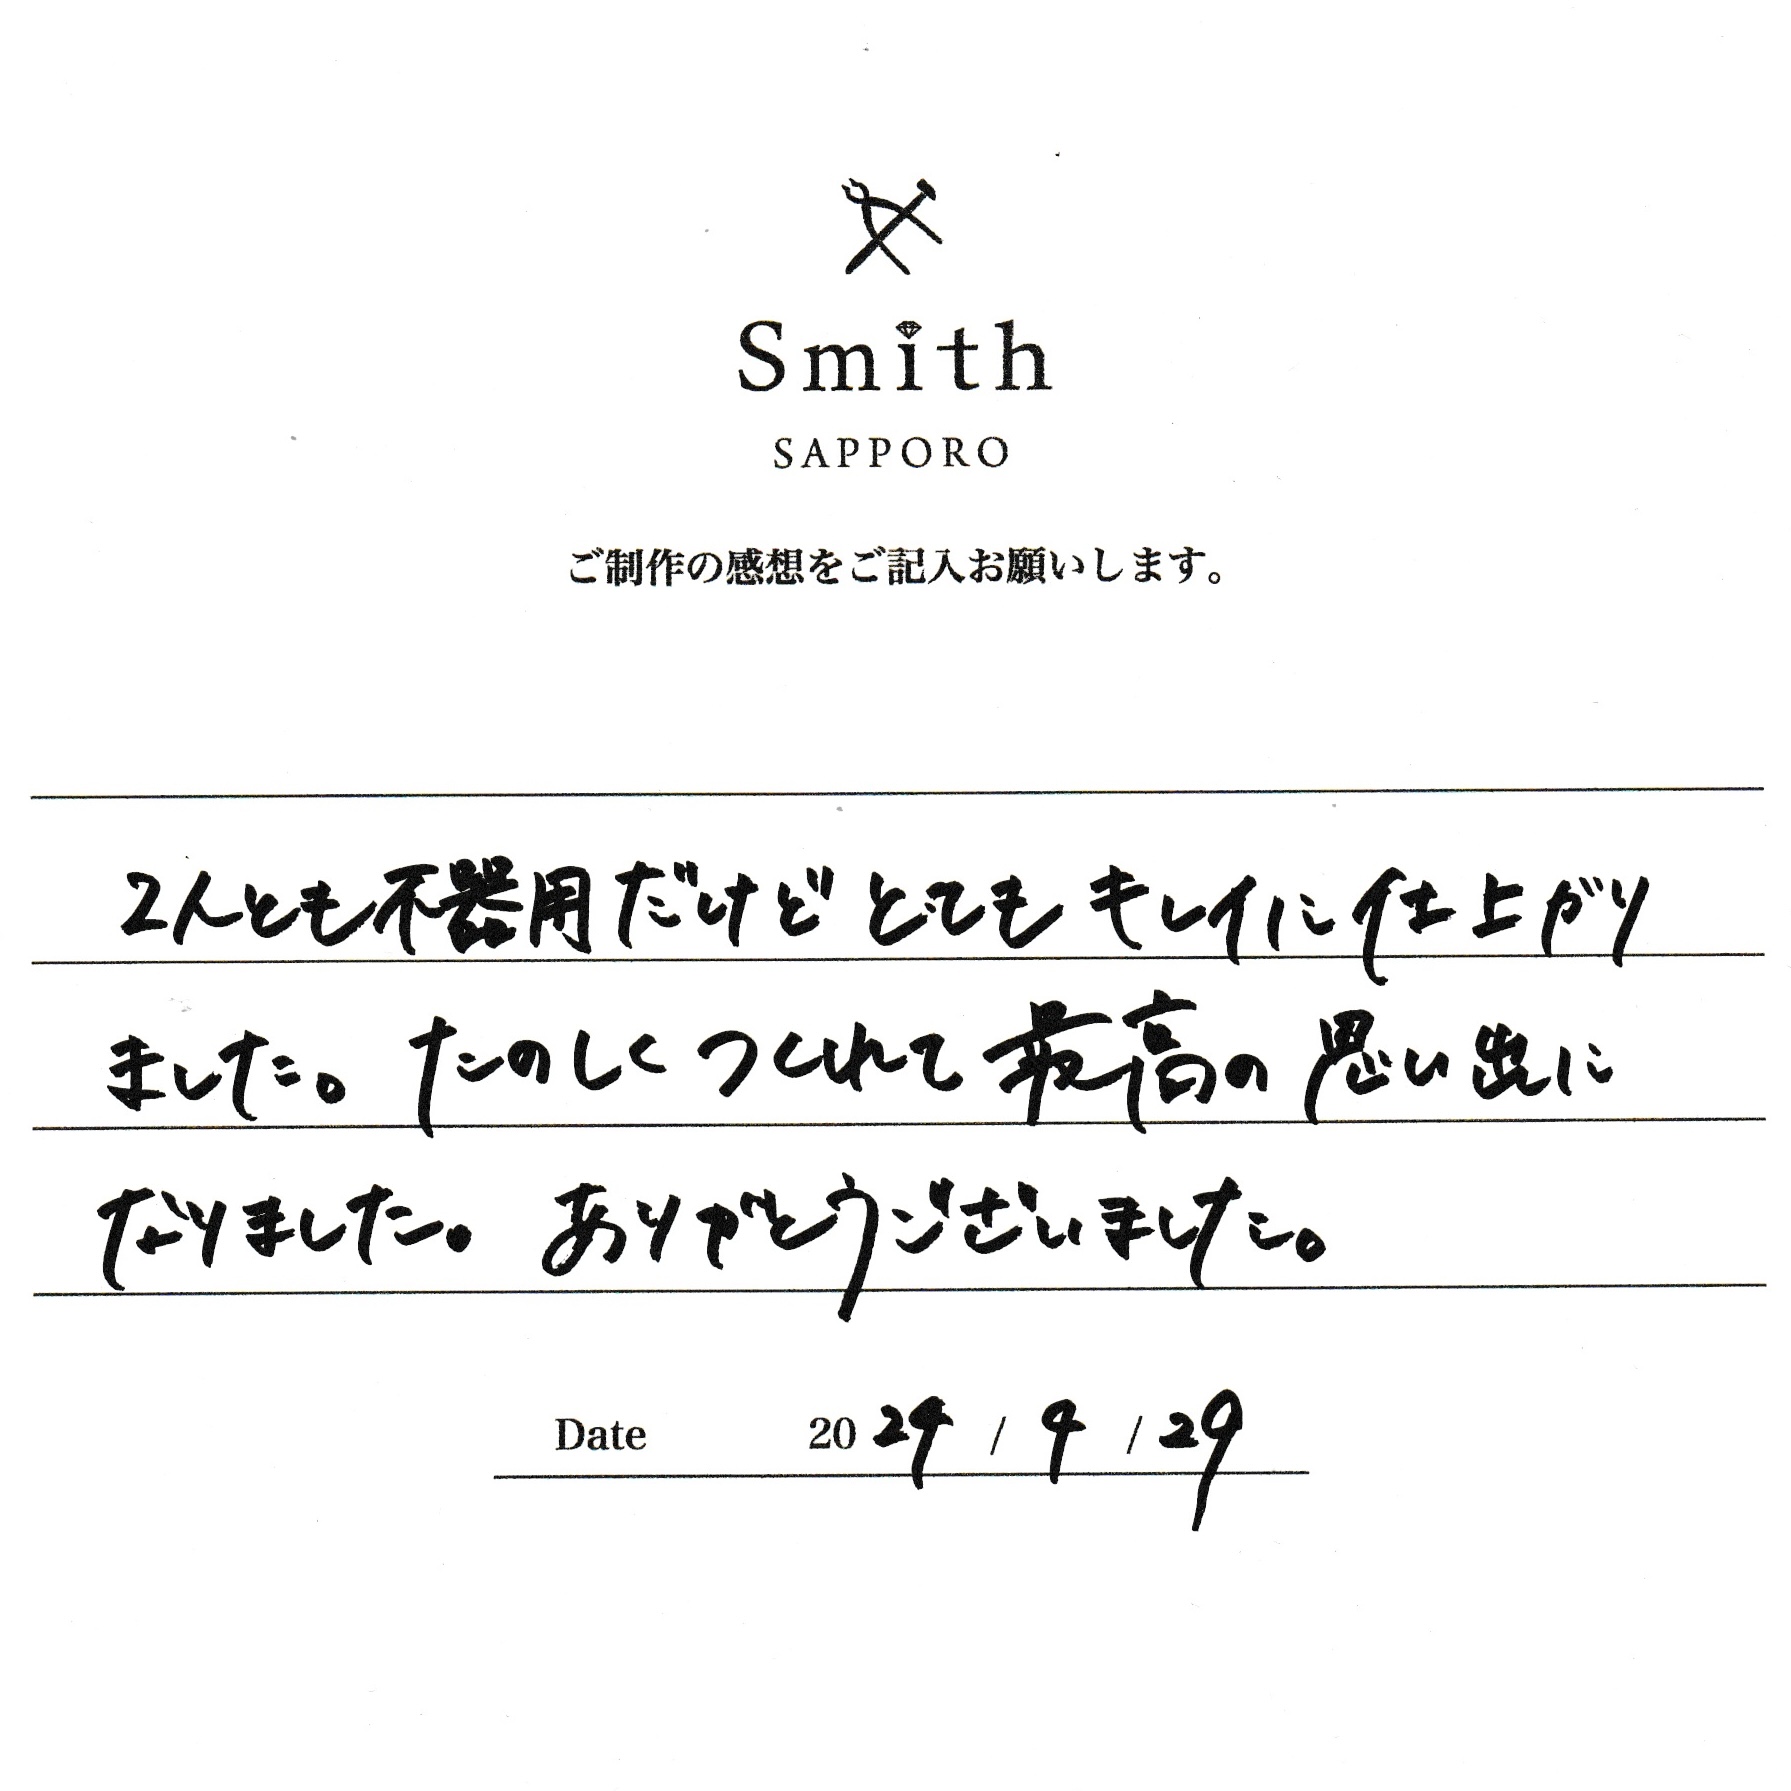 Smith
SAPPORO
ご制作の感想をご記入お願いします。
2人とも不器用だけどとてもキレイに仕上がり
ました。たのしくつくれて最高の思い出に
なりました。ありがとうございました。
Date 2024 / 9 / 29